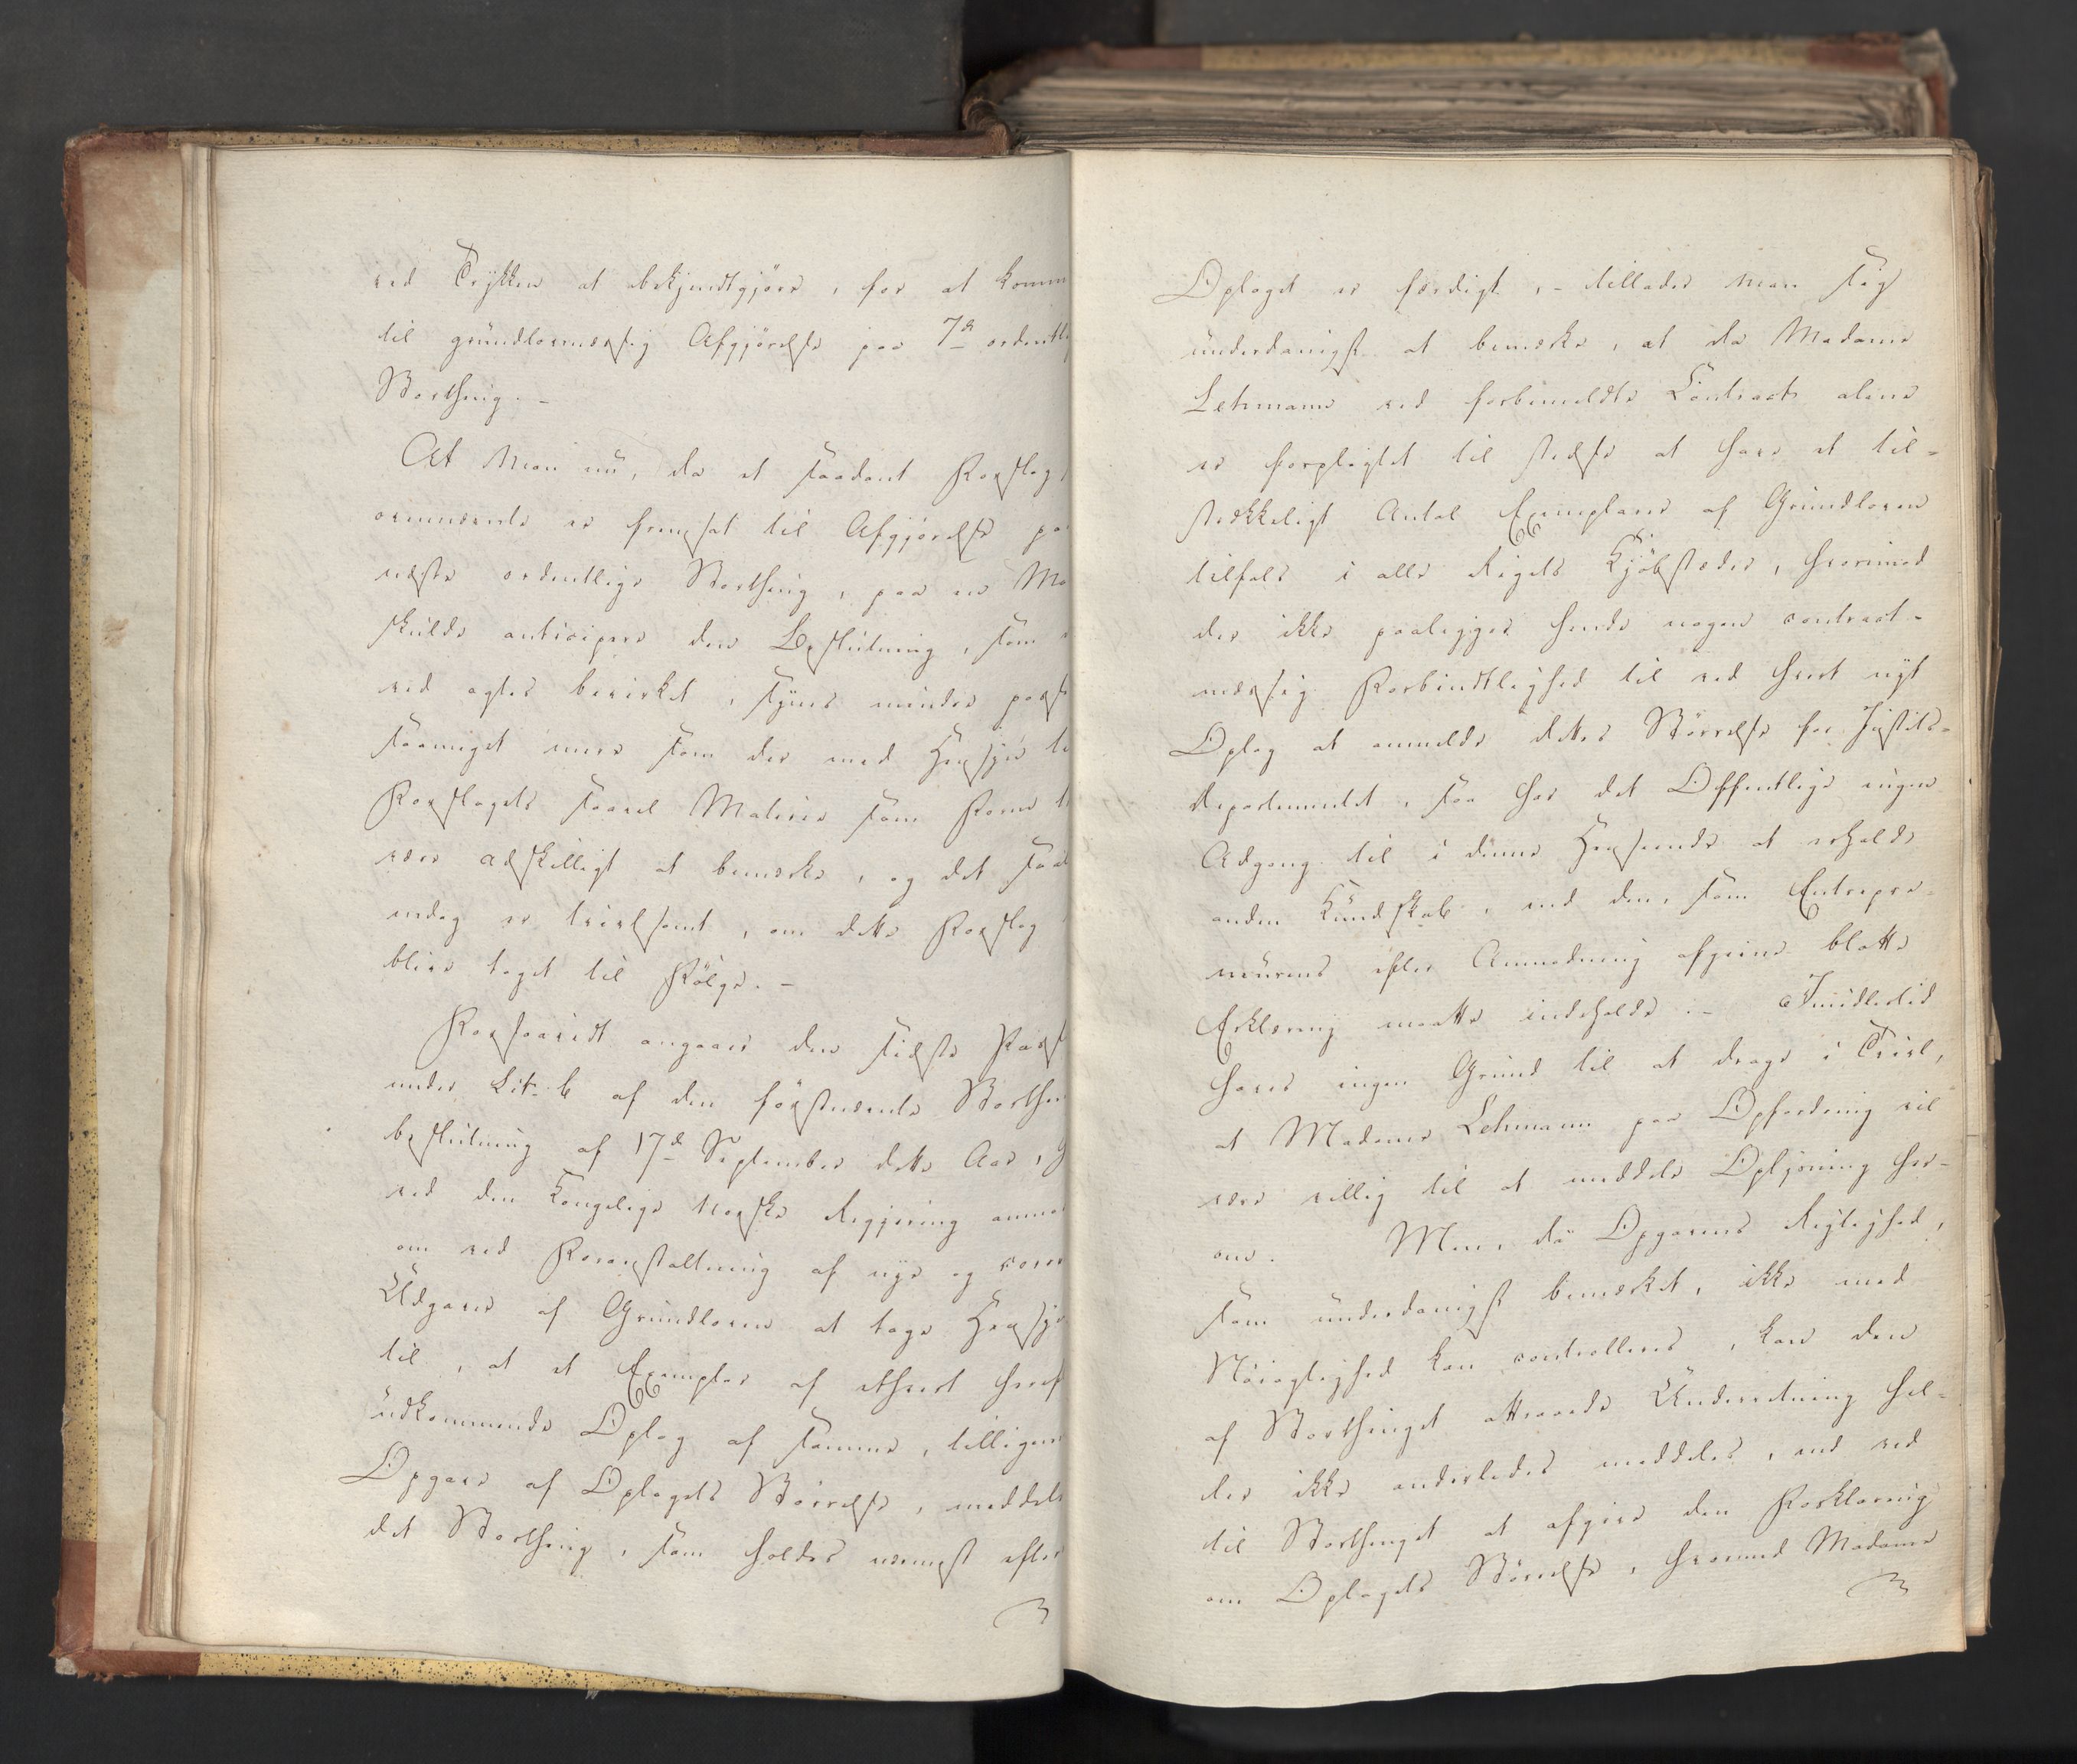 ved Trykken at bekjendtgjøre, for at komm
til grundlovmæssig Afgjørelse paa 7de ordentli
Storthing. –
At man nu, da et saadant Forslag
ovennævnte er fremsat til Afgjørelse paa
næste ordentlige Storthing, paa en Ma
skulde anticipere den Beslutning, som
ved agtes bevirket, synes mindre pass
saameget mere som der med Hensyn ti
Forslagets saavel Materie som Form t
være adskilligt at bemærke, og det saa
endog er tvivlsomt, om dette Forslag
blive taget til Følge. –
Forsaavidt angaaer den sidste Post
under Lit. b af den førstnævnte Storthi
beslutning af 17de September dette Aar, h
ved den Kongelige Norske Regjering anmo
om ved Foranstaltning af nye og corre
Udgaver af Grundloven at tage Hensyn
til, at et Exemplar af ethvert heraf
udkommende Oplag af samme, tilligem
Opgave af Oplagets Størrelse, meddele
det Storthing, som holdes nærmest efter
Oplaget er færdigt, – tillader man sig
underdanigst at bemærke, at da Madame
Lehmann ved forbemeldte Contract alene
er forpligtet til stedse at have et til-
strækkeligt Antal Exemplarer af Grundloven
tilfals i alle Rigets Kjøbstæder, hvorimod
der ikke paalægges hende nogen contract-
mæssig Forbindtlighed til ved hvert nyt
Oplag at anmelde dettes Størrelse for Justits-
departementet, saa har det Offentlige ingen
Adgang til i denne Henseende at erholde
anden Kundskab, end den, som Entrepre-
neurens efter Anmodning afgivne blotte
Erklæring maatte indeholde. – Imidlertid
haves ingen Grund til at drage i Tvivl,
at Madame Lehmann paa Opfordring vil
være villig til at meddele Oplysning her-
om. Men, da Opgavens Rigtighed,
som underdanigst bemærket, ikke med
Nøiagtighed kan controlleres, kan den
af Storthinget attraaede Underretning hel-
der ikke anderledes meddeles, end ved
til Storthinget at afgive den Forklaring
om Oplagets Størrelse, hvormed Madame